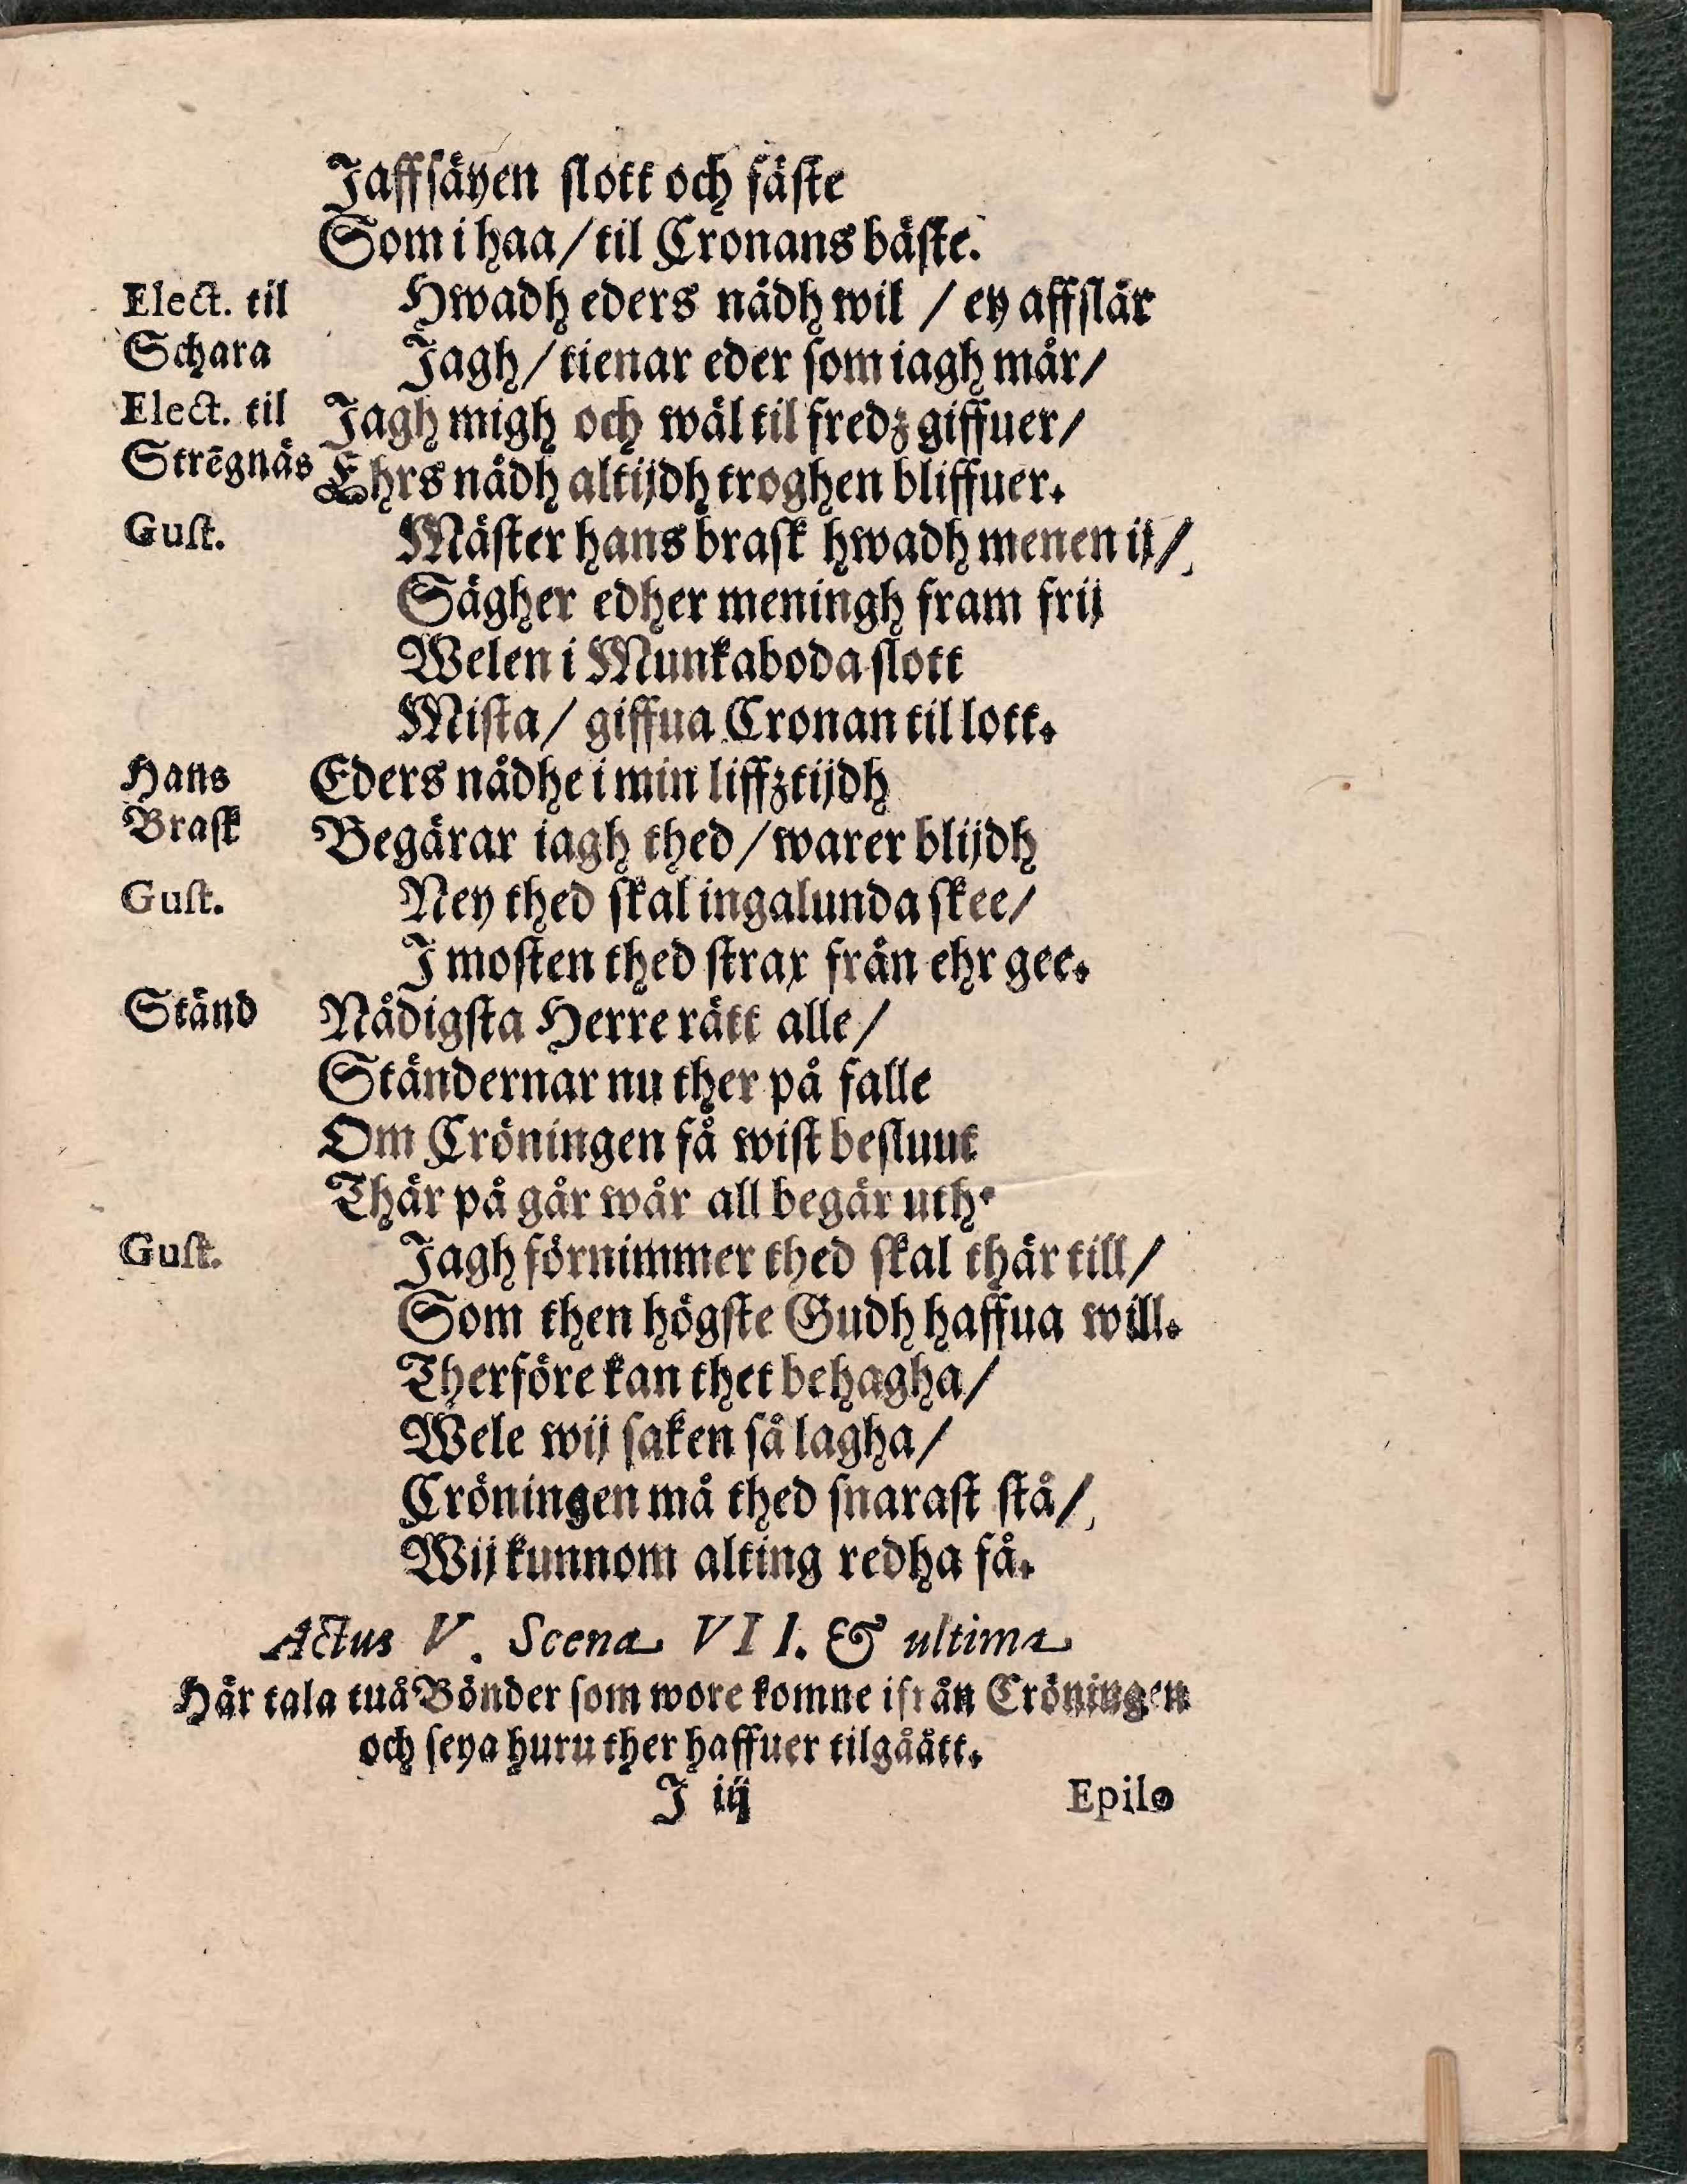 Jaffsäyen slott och fäste
Som i haa / til Cronans bäste.
Elect. til Hwadh eders nådh wil / ey affslår
Schara Jagh / tienar eder som iagh mår /
Elect. til Jagh migh och wäl til fredz giffuer /
Strēgnäs Ehrs nådh altijdh troghen bliffuer.
Gust. Mäster hans brask hwadh menen ij /
Sägher edher meningh fram frij
Welen i Munkaboda slott
Mista / giffua Cronan til lott.
Hans Eders nådhe i min liffztijdh
Brask Begärar iagh thed / warer blijdh
Gust. Ney thed skal ingalunda skee /
J mosten thed strax från ehr gee.
Ständ Nådigsta Herre rätt alle /
Ständernar nu ther på falle
Om Cröningen få wist besluut
Thär på går wår all begär uth.
Gust. Jagh förnimmer thed skal thär till /
Som then högste Gudh haffua will.
Therföre kan thet behagha /
Wele wij saken så lagha /
Cröningen må thed snarast stå /
Wij kunnom alting redha få.
Actus V. Scena VII. & ultima
Här tala tuå Bönder som wore komne ifrån Cröningen
och seya huru ther haffuer tilgåätt.
J iij Epilo